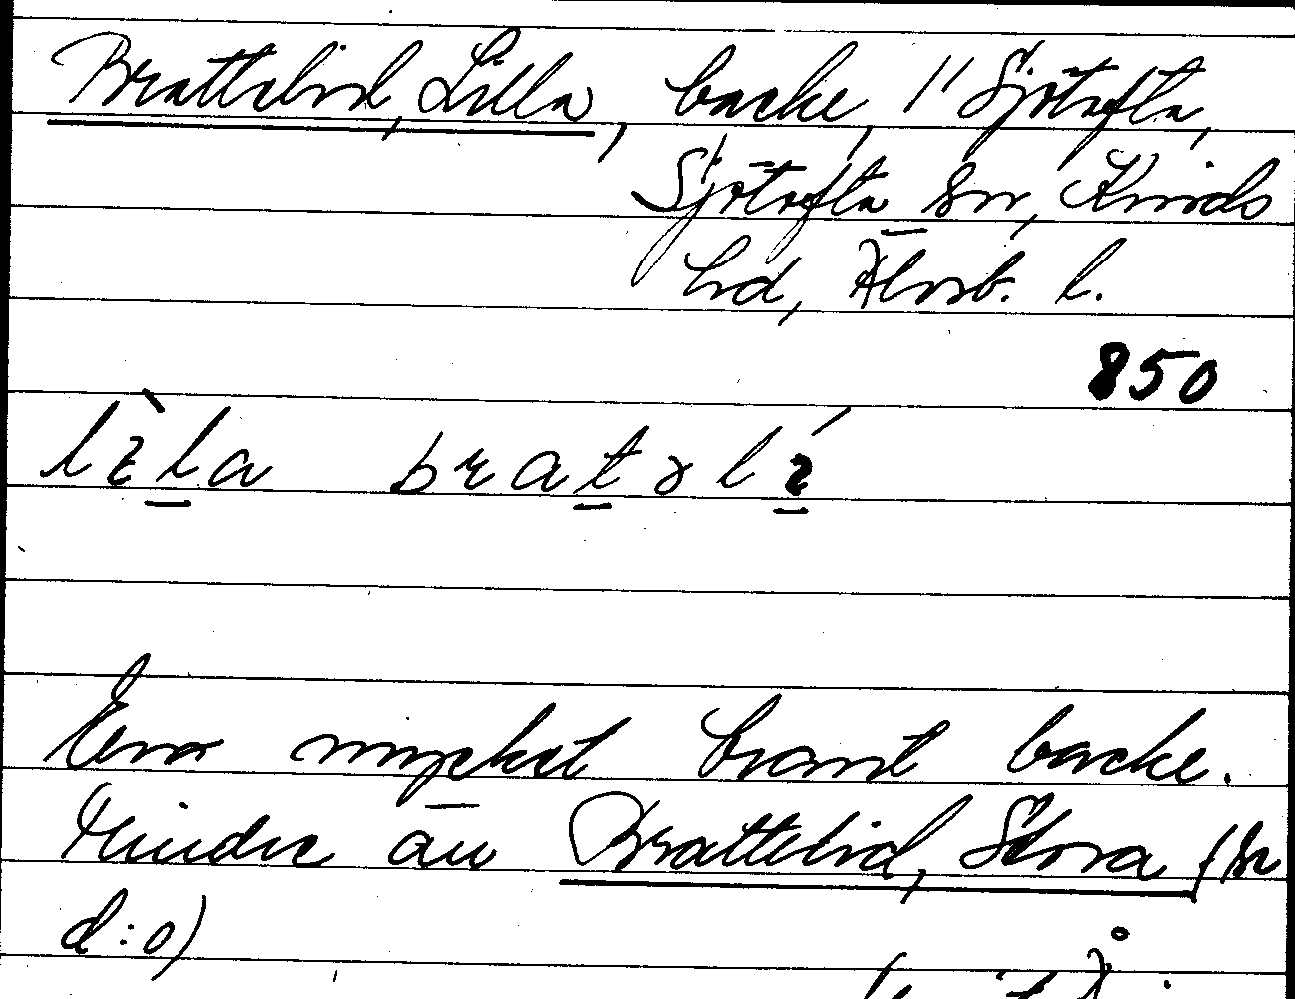 Brattelid, Lilla, backe, 1' Sjötofta,
Sjötofta sn, Kinds
hd, Älvsb. l.
850
lìla bratəlí
En mycket brant backe.
Mindre än Brattelid, Stora (se
d:o)